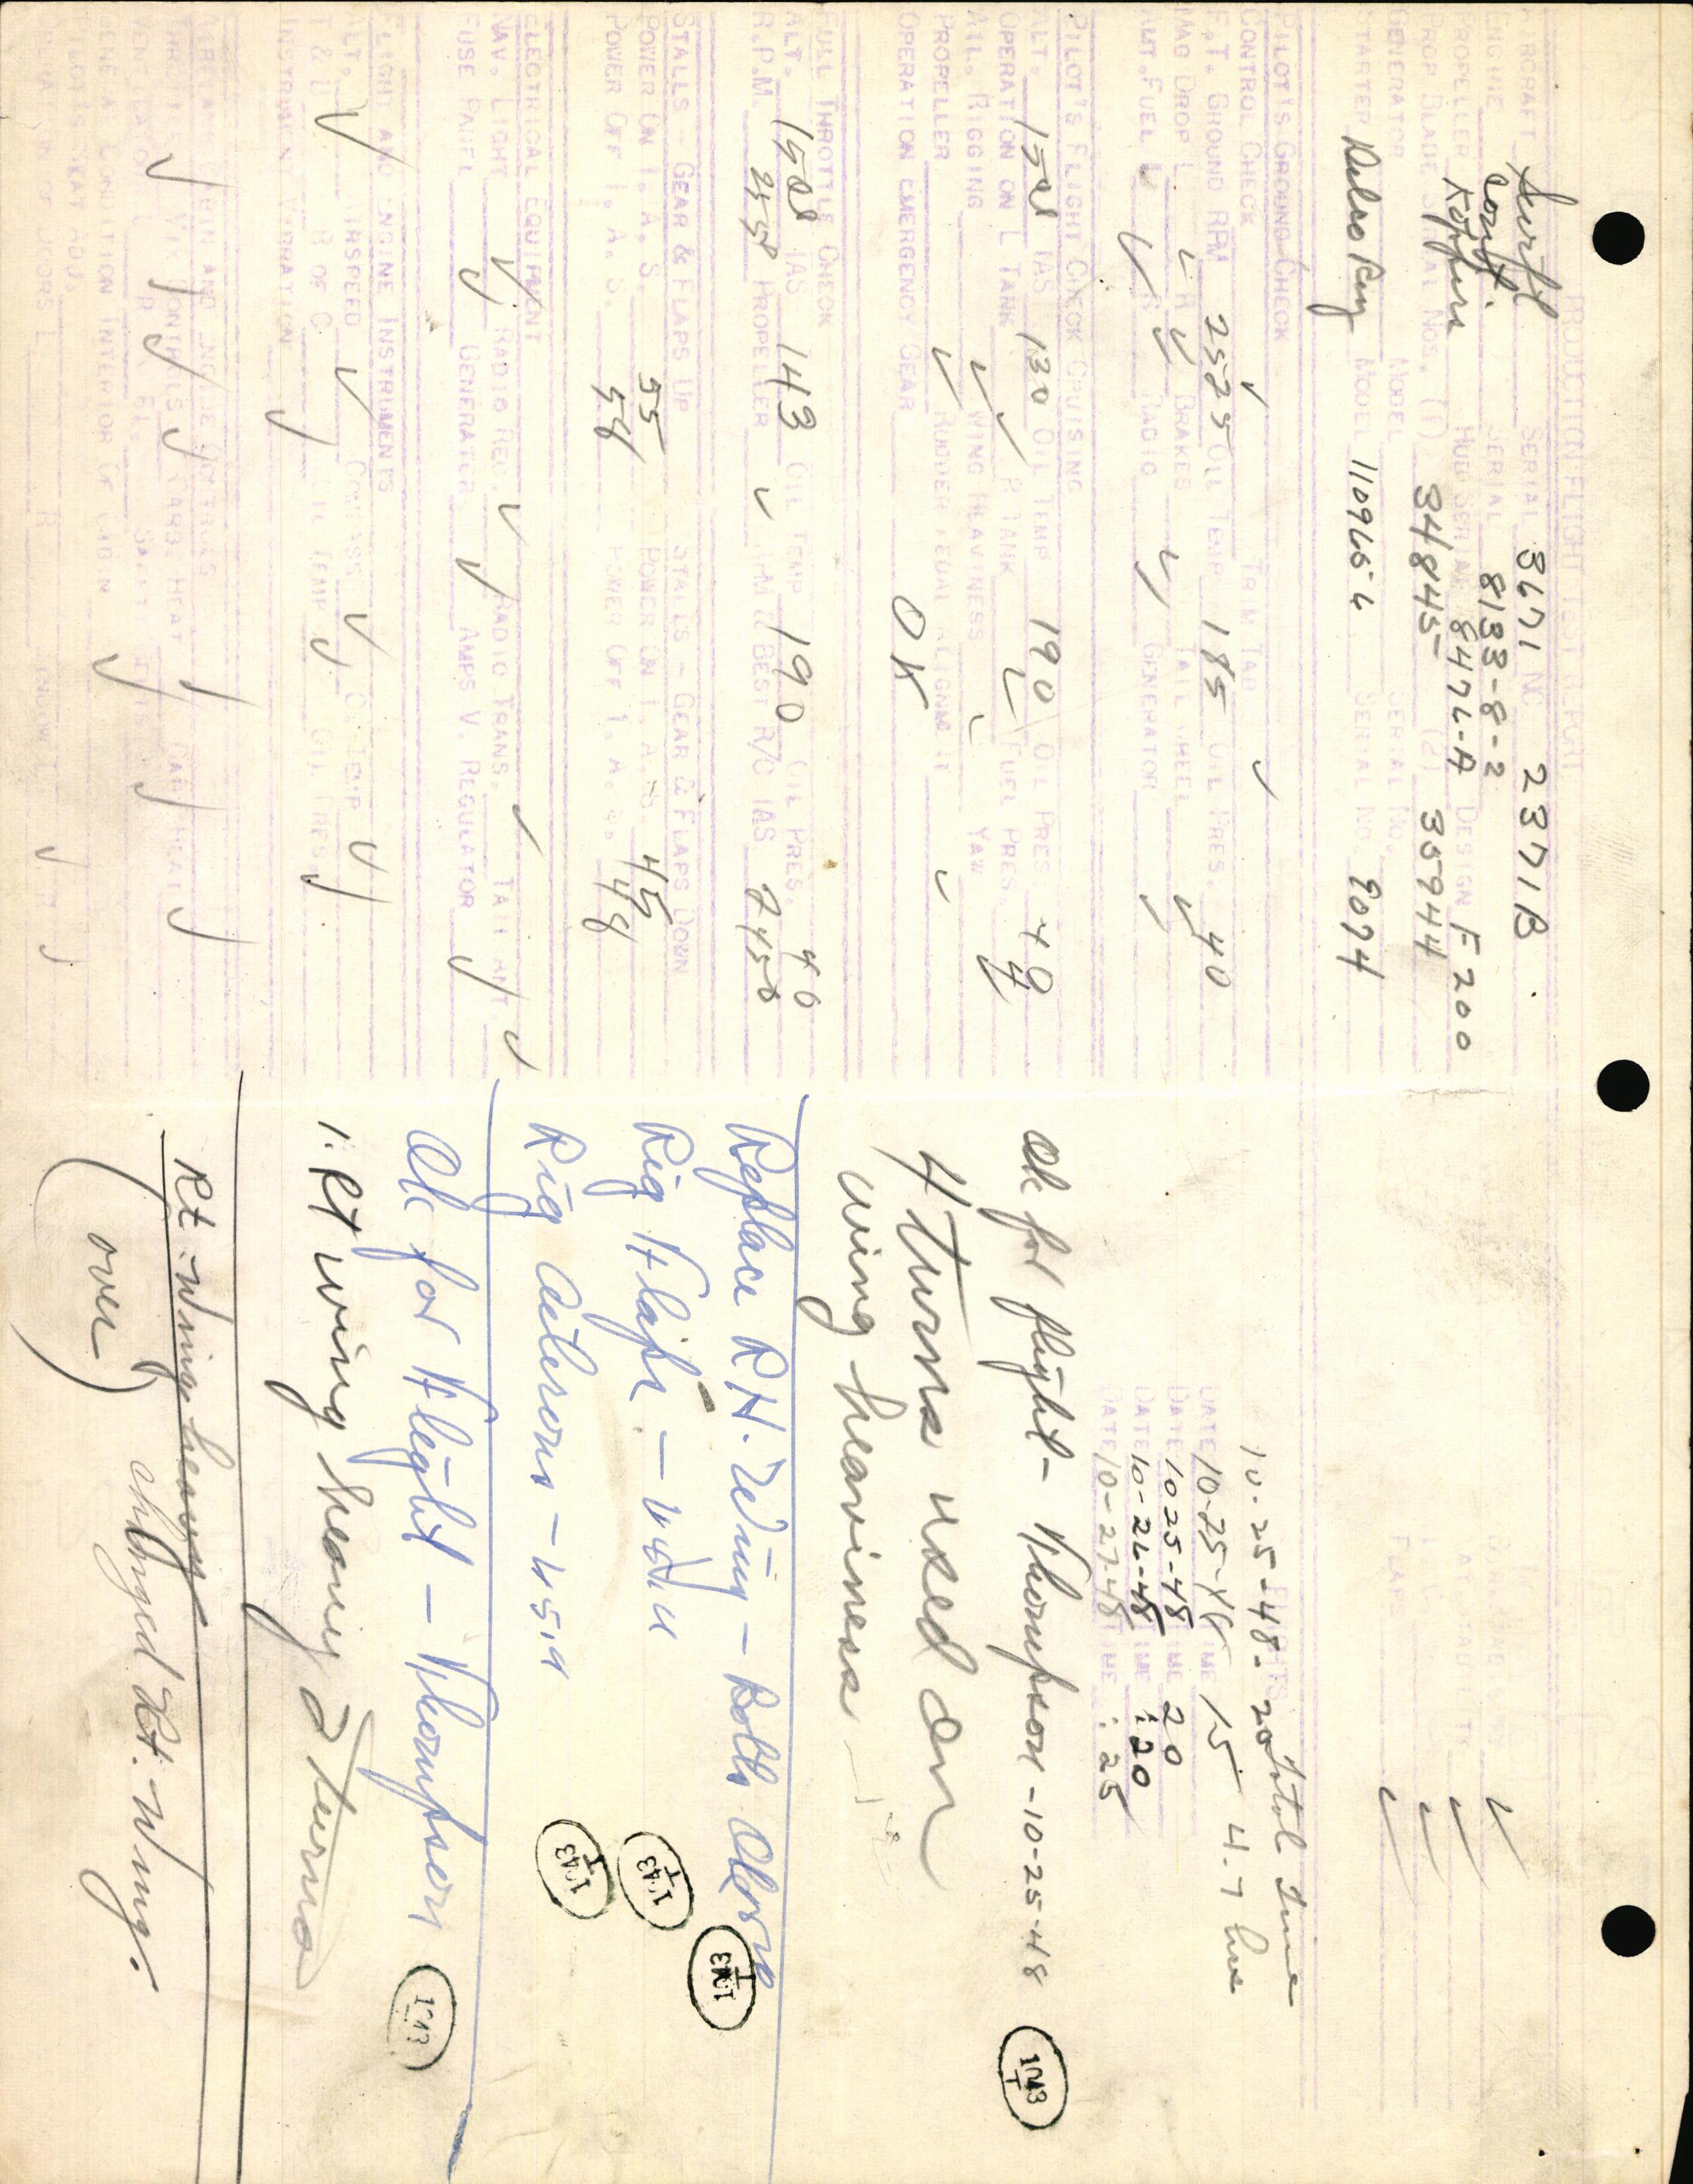 PRODUCTION FLIGHT TEST REPORT
AIRCRAFT Swift SERIAL 3671 NC 2371B
ENGINE Cont. SERIAL 8133-8-2
PROPELLER Koppers HUB SERIAL 8476-A DESIGN F200
PROP BLADE SERIAL NOS. (1) 34845 (2) 35944
GENERATOR MODEL SERIAL NO.
STARTER Delco Remy MODEL 1109656 SERIAL NO. 9074
PILOT'S GROUND CHECK
CONTROL CHECK ✓ TRIM TAB ✓
F.T. GROUND RPM 2525 OIL TEMP 185 OIL PRES. 40
MAG DROP L ✓ R ✓ BRAKES ✓ TAIL WHEEL ✓
AMT. FUEL L ✓ R RADIO GENERATOR ✓
PILOT'S FLIGHT CHECK CRUISING
ALT. 1500 IAS 130 OIL TEMP 190 OIL PRES 40
OPERATION ON L TANK ✓ R TANK ✓ FUEL PRES. 4
AIL. RIGGING ✓ WING HEAVINESS ✓ YAW
PROPELLER ✓ RUDDER PEDAL ALIGNMENT ✓
OPERATION EMERGENCY GEAR OK
FULL THROTTLE CHECK
ALT. 1500 IAS 143 OIL TEMP 190 OIL PRES. 40
R.P.M. 2550 PROPELLER ✓ RPM @ BEST R/C IAS 2450
STALLS - GEAR & FLAPS UP STALLS - GEAR & FLAPS DOWN
POWER ON I. A. S. 55 POWER ON I. A. S. 45
POWER OFF I. A. S. 58 POWER OFF I. A. S. 48
ELECTRICAL EQUIPMENT
NAV. LIGHT ✓ RADIO REC. ✓ RADIO TRANS. ✓ TAIL ANT. ✓
FUSE PANEL ✓ GENERATOR ✓ AMPS V. REGULATOR ✓
FLIGHT AND ENGINE INSTRUMENTS
ALT. ✓ AIRSPEED ✓ COMPASS ✓ C. TEMP ✓
T & B ✓ R OF C ✓ OIL TEMP ✓ OIL PRES. ✓
INSTRUMENT VIBRATION ✓
AIRPLANE CABIN AND ENGINE CONTROLS
THROTTLE ✓ MIX CONTROLS ✓ CARB. HEAT ✓ CAB. HEAT ✓
GENERAL CONDITION INTERIOR OF CABIN ✓
OPERATION OF DOORS L R WINDOW L ✓ R ✓
FLAPS ✓
10-25-48-20 total time
DATE 10-25-48 TIME 15 4.7 hrs
DATE 10 25-48 TIME 20
DATE 10-26-48 TIME :20
DATE 10-27-48 TIME :25
Ok for flight - Thompson - 10-25-48
1043 T
4 turns used on
wing heaviness
Replace R.H. Wing - Both Ailerons
1043 T
Rig Flaps -
1043 T
Rig Ailerons -
1043 T
Ok for Flight - Thompson
1043
1. Rt wing heavy 2 turns
Rt. Wing heavy
changed Rt. Wing.
(over)